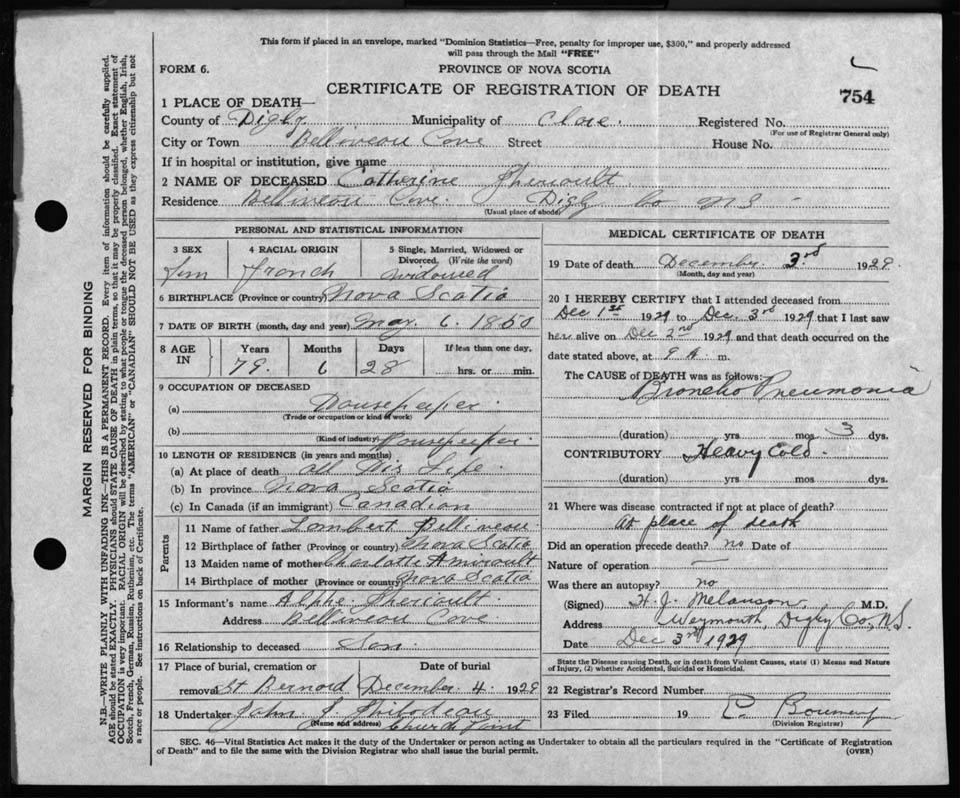 This form if placed in an envelope, marked "Dominion Statistics—Free, penalty for improper use, $300," and properly addressed
will pass through the Mail "FREE"
FORM 6.
PROVINCE OF NOVA SCOTIA
CERTIFICATE OF REGISTRATION OF DEATH
754
1 PLACE OF DEATH—
County of Digby Municipality of Clare. Registered No.
(For use of Registrar General only)
City or Town Belliveau Cove Street House No.
If in hospital or institution, give name
2 NAME OF DECEASED Catherine Theriault
Residence Belliveau Cove. Digby Co N S -
(Usual place of abode)
PERSONAL AND STATISTICAL INFORMATION
3 SEX 4 RACIAL ORIGIN 5 Single, Married, Widowed or
Divorced. (Write the word)
Fem French widowed
6 BIRTHPLACE (Province or country) Nova Scotia
7 DATE OF BIRTH (month, day and year) May. 6. 1850
8 AGE IN Years Months Days If less than one day,
79. 6 28 hrs. or min.
9 OCCUPATION OF DECEASED
(a) Housekeeper.
(Trade or occupation or kind of work)
(b) Housekeeper.
(Kind of industry)
10 LENGTH OF RESIDENCE (in years and months)
(a) At place of death all His Life.
(b) In province Nova Scotia
(c) In Canada (if an immigrant) Canadian
Parents
11 Name of father Lombert Belliveau
12 Birthplace of father (Province or country) Nova Scotia
13 Maiden name of mother Charlotte Amirault
14 Birthplace of mother (Province or country) Nova Scotia
15 Informant's name Alphe Theriault.
Address Belliveau Cove.
16 Relationship to deceased Son.
17 Place of burial, cremation or Date of burial
removal St Bernard December. 4. 1929
18 Undertaker John Thibodeau
(Name and address) Church Point
MEDICAL CERTIFICATE OF DEATH
19 Date of death December 3rd 1929.
(Month, day and year)
20 I HEREBY CERTIFY that I attended deceased from
Dec 1st 1929 to Dec. 3rd 1929 that I last saw
her alive on Dec 2nd 1929 and that death occurred on the
date stated above, at 9 A. m.
The CAUSE of DEATH was as follows:
Broncho Pneumonia
(duration) yrs mos 3 dys.
CONTRIBUTORY Heavy Cold.
(duration) yrs mos dys.
21 Where was disease contracted if not at place of death?
At place of death
Did an operation precede death? no Date of
Nature of operation —
Was there an autopsy? no
(Signed) H. J. Melanson, M.D.
Address Weymouth, Digby Co, N.S.
Date Dec 3rd 1929
State the Disease causing Death, or in death from Violent Causes, state (1) Means and Nature
of Injury, (2) whether Accidental, Suicidal or Homicidal.
22 Registrar's Record Number
23 Filed 19
(Division Registrar)
SEC. 46—Vital Statistics Act makes it the duty of the Undertaker or person acting as Undertaker to obtain all the particulars required in the "Certificate of Registration
of Death" and to file the same with the Division Registrar who shall issue the burial permit. (OVER)
MARGIN RESERVED FOR BINDING
N.B.—WRITE PLAINLY WITH UNFADING INK—THIS IS A PERMANENT RECORD. Every item of information should be carefully supplied.
AGE should be stated EXACTLY. PHYSICIANS should STATE CAUSE OF DEATH in plain terms, so that it may be properly classified. Exact statement of
OCCUPATION is very important. RACIAL ORIGIN will be described by stating to what people or tongue the deceased person belonged, whether English, Irish,
Scotch, French, German, Russian, Ruthenian, etc. The terms "AMERICAN" or "CANADIAN" SHOULD NOT BE USED as they express citizenship but not
a race or people. See instructions on back of Certificate.